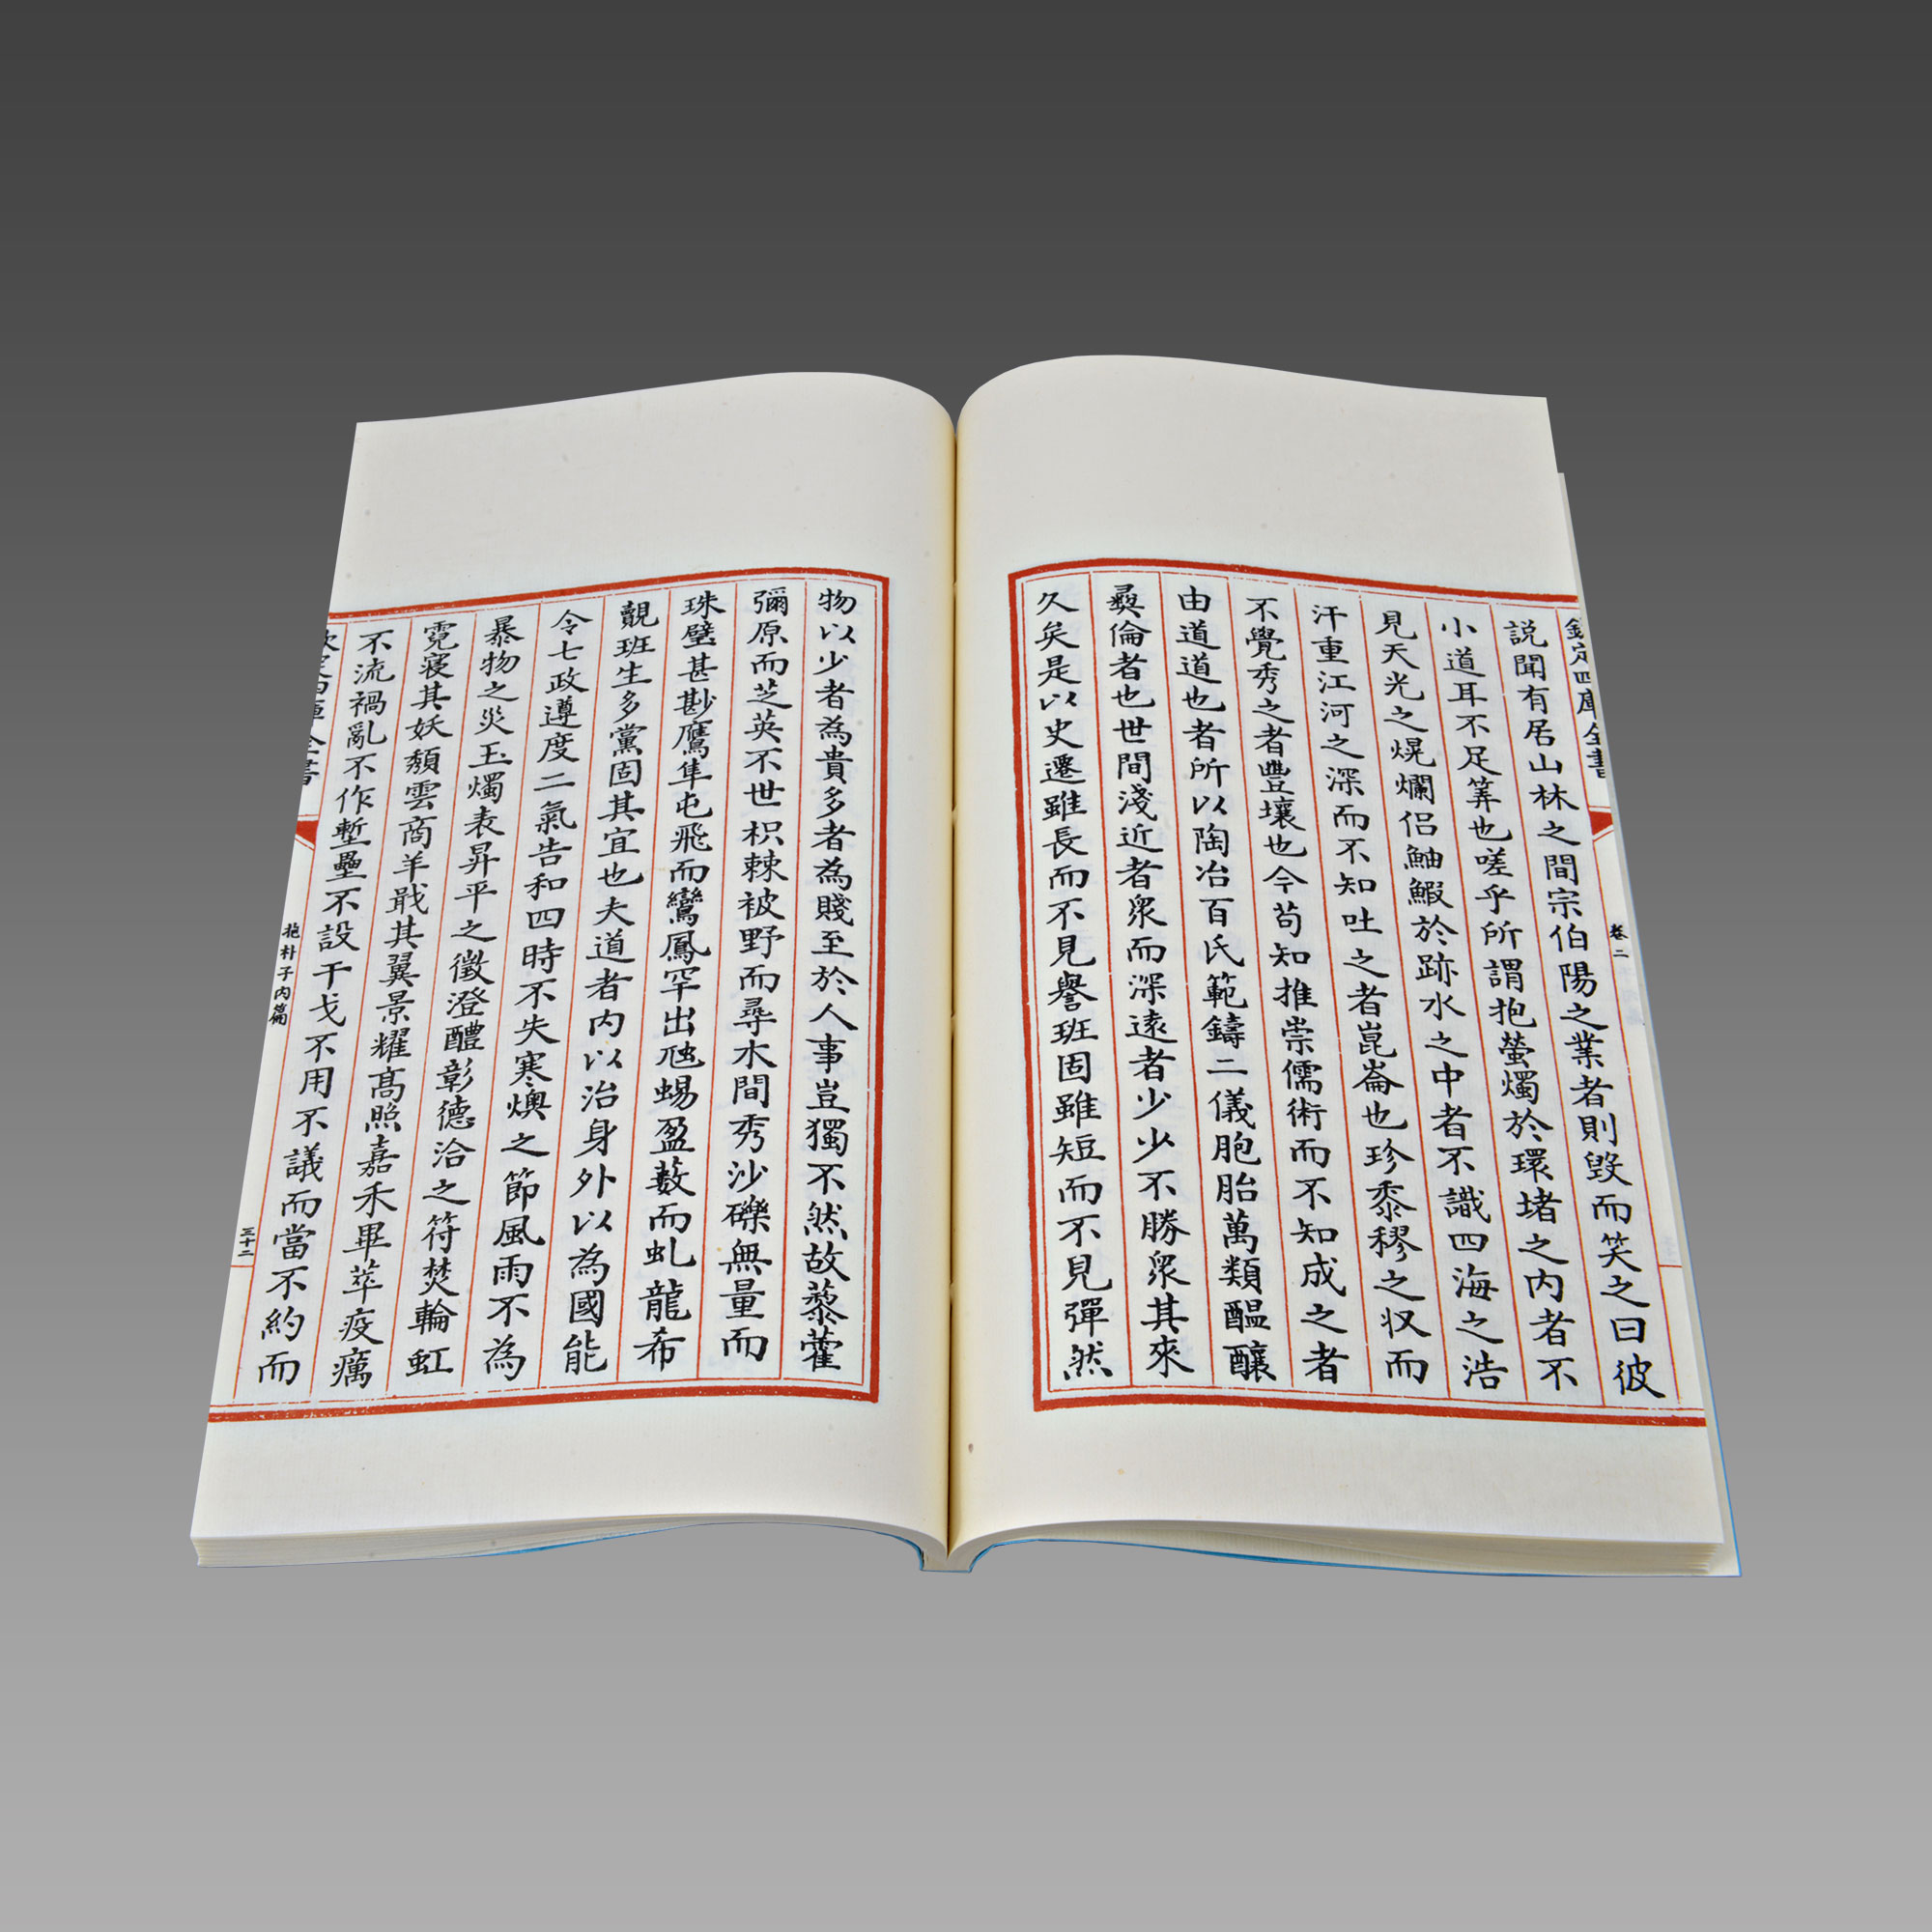 欽定四庫全書
卷二
説聞有居山林之間宗伯陽之業者則毀而笑之曰彼
小道耳不足筭也嗟乎所謂抱螢燭於環堵之内者不
見天光之熀爛侣鮋鰕於跡水之中者不識四海之浩
汗重江河之深而不知吐之者崑崙也珍黍穋之收而
不覺秀之者豐壤也今苟知推崇儒術而不知成之者
由道道也者所以陶冶百氏範鑄二儀胞胎萬類醖釀
彝倫者也世間淺近者衆而深逺者少少不勝衆其來
久矣是以史遷雖長而不見譽班固雖短而不見彈然
物以少者為貴多者為賤至於人事豈獨不然故藜藿
彌原而芝英不世枳棘被野而尋木間秀沙礫無量而
珠璧甚尠鷹隼屯飛而鸞鳳罕出虺蜴盈藪而虬龍希
覿班生多黨固其宜也夫道者内以治身外以為國能
令七政遵度二氣告和四時不失寒燠之節風雨不為
暴物之災玉燭表昇平之徵澄醴彰德洽之符焚輪虹
霓寢其妖頽雲商羊戢其翼景耀髙照嘉禾畢萃疫癘
不流禍亂不作塹壘不設干戈不用不議而當不約而
欽定四庫全書
抱朴子内篇
三十二